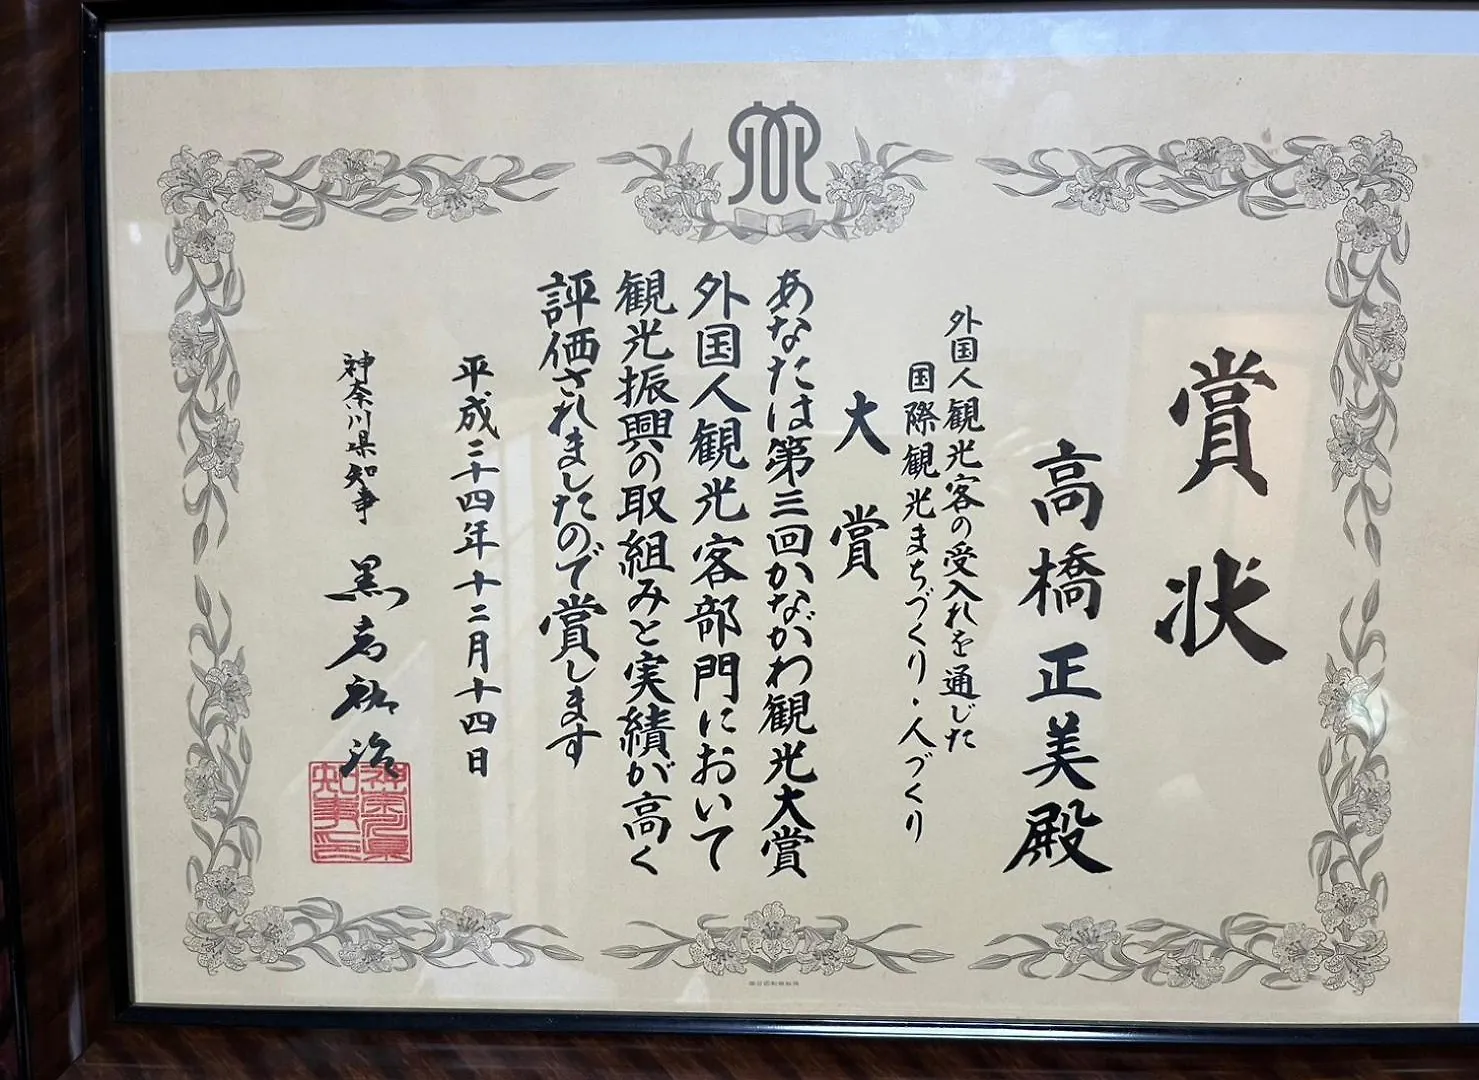 賞状
高橋正美殿
外国人観光客の受入れを通じた
国際観光まちづくり・人づくり
大賞
あなたは第三回かながわ観光大賞
外国人観光客部門において
観光振興の取組みと実績が高く
評価されましたので賞します
平成二十四年十二月十四日
神奈川県知事 黒岩祐治
神奈川県
知事之印